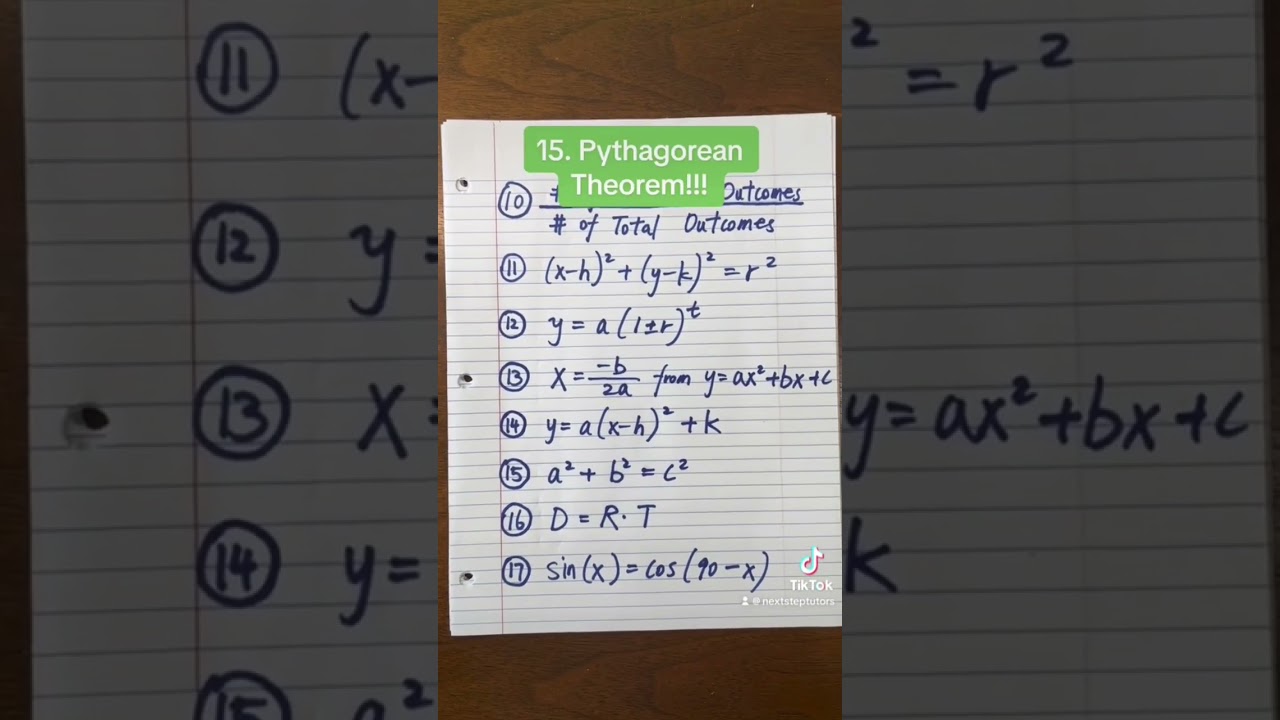 15. Pythagorean
Theorem!!!
⑩ # Outcomes
# of Total Outcomes
⑪ (x-h)² + (y-k)² = r²
⑫ y = a(1±r)^t
⑬ X = -b/2a from y=ax²+bx+c
⑭ y=a(x-h)² + k
⑮ a² + b² = c²
⑯ D = R·T
⑰ sin(x) = cos(90-x)
TikTok
@nextsteptutors
⑪ (x- ² = r²
⑫ y=
⑬ X= y=ax²+bx+c
⑭ y= k
⑮ a²